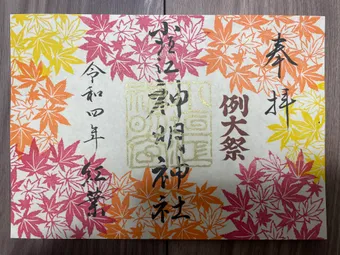 奉拝
例大祭
神明神社
令和四年 紅葉